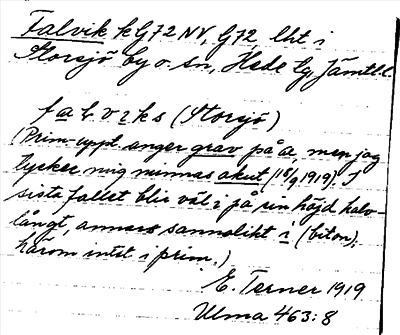 Falvik k G72 NV, G72, lht i
Storsjö by o. sn, Hede tg, Jämtl. l.
falvɩks (Storsjö)
(Prim-uppt. anger grav på a, men jag
tycker mig minnas akut (18/9 1919). I
sista fallet blir väl ɩ på sin höjd halv-
långt, annars sannolikt i (biton),
härom intet i prim.)
E. Terner 1919
Ulma 463:8